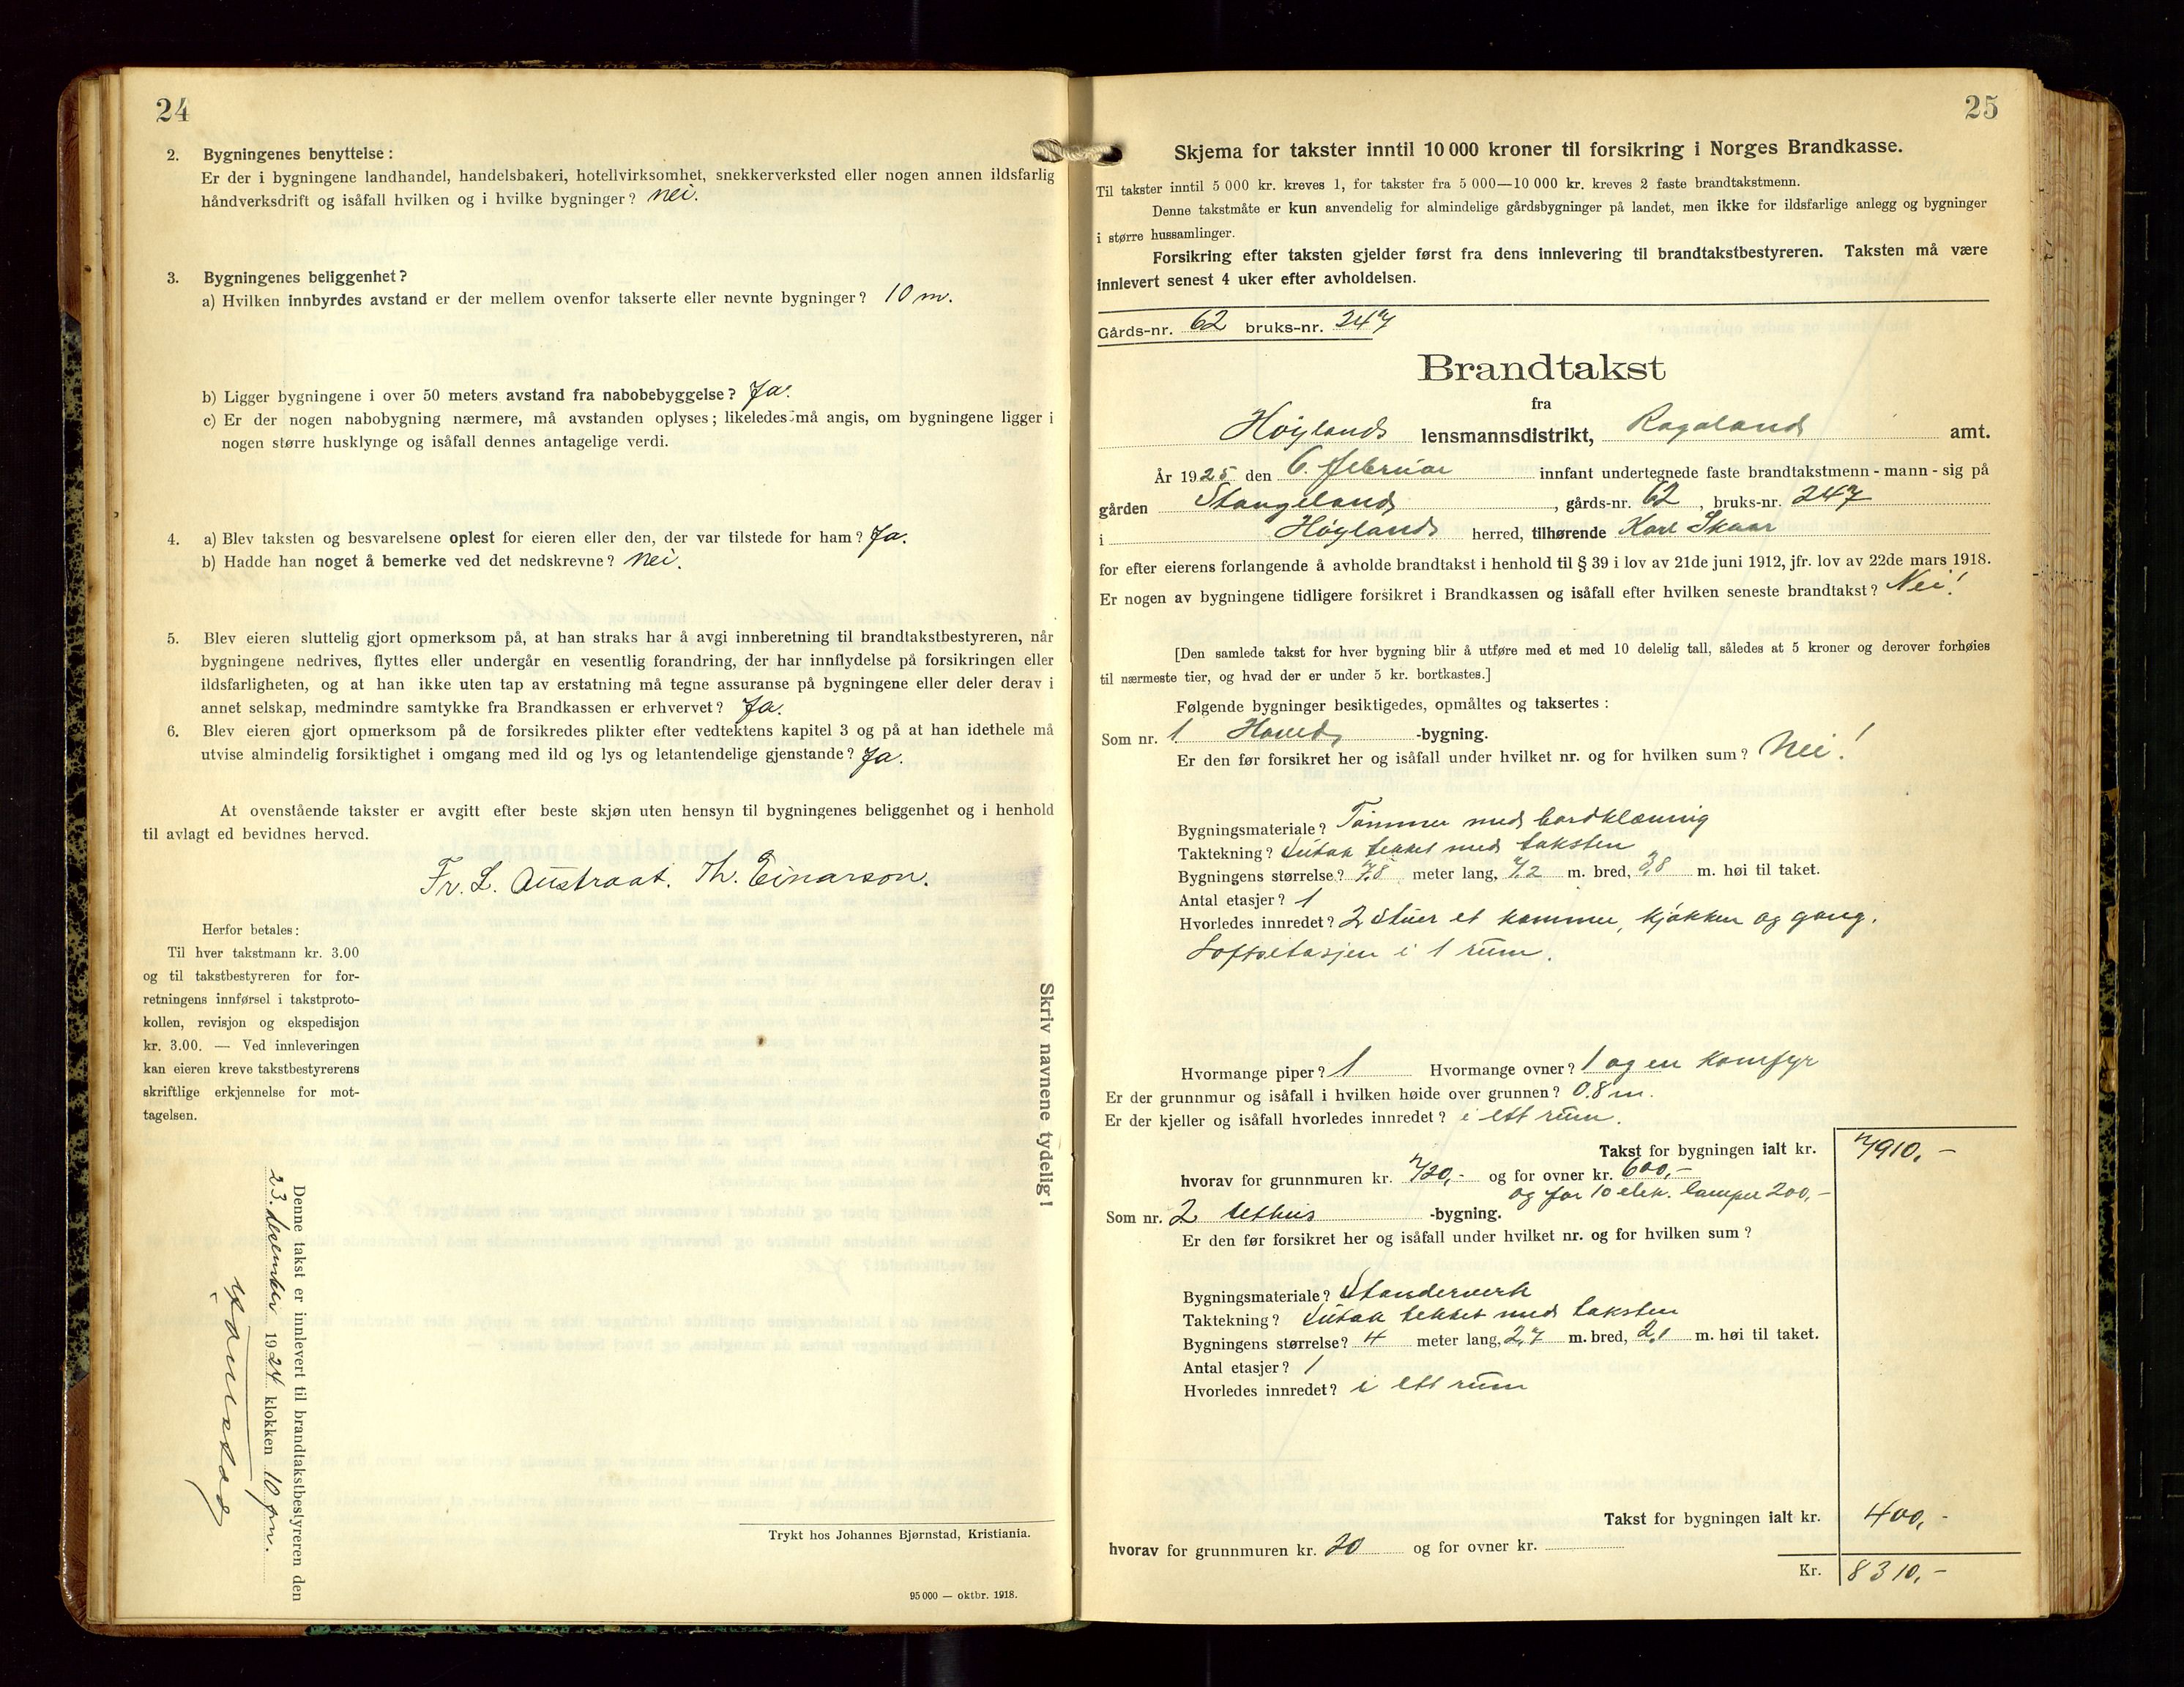 24
2. Bygningenes benyttelse:
Er der i bygningene landhandel, handelsbakeri, hotellvirksomhet, snekkerverksted eller nogen annen ildsfarlig
håndverksdrift og isåfall hvilken og i hvilke bygninger? nei.
3. Bygningenes beliggenhet?
a) Hvilken innbyrdes avstand er der mellem ovenfor takserte eller nevnte bygninger? 10 m.
b) Ligger bygningene i over 50 meters avstand fra nabobebyggelse? Ja.
c) Er der nogen nabobygning nærmere, må avstanden oplyses; likeledes må angis, om bygningene ligger i
nogen større husklynge og isåfall dennes antagelige verdi.
4. a) Blev taksten og besvarelsene oplest for eieren eller den, der var tilstede for ham? Ja.
b) Hadde han noget å bemerke ved det nedskrevne? nei.
5. Blev eieren sluttelig gjort opmerksom på, at han straks har å avgi innberetning til brandtakstbestyreren, når
bygningene nedrives, flyttes eller undergår en vesentlig forandring, der har innflydelse på forsikringen eller
ildsfarligheten, og at han ikke uten tap av erstatning må tegne assuranse på bygningene eller deler derav i
annet selskap, medmindre samtykke fra Brandkassen er erhvervet? Ja.
6. Blev eieren gjort opmerksom på de forsikredes plikter efter vedtektens kapitel 3 og på at han idethele må
utvise almindelig forsiktighet i omgang med ild og lys og letantendelige gjenstande? Ja.
At ovenstående takster er avgitt efter beste skjøn uten hensyn til bygningenes beliggenhet og i henhold
til avlagt ed bevidnes herved.
Fr. L. Austraat. Th. Einarson.
Herfor betales:
Til hver takstmann kr. 3.00
og til takstbestyreren for for-
retningens innførsel i takstproto-
kollen, revisjon og ekspedisjon
kr. 3.00. — Ved innleveringen
kan eieren kreve takstbestyrerens
skriftlige erkjennelse for mot-
tagelsen.
Skriv navnene tydelig!
Denne takst er innlevert til brandtakstbestyreren den
23. desember 1924 klokken 10 fm.
Trykt hos Johannes Bjørnstad, Kristiania.
95 000 — oktbr. 1918.
25
Skjema for takster inntil 10 000 kroner til forsikring i Norges Brandkasse.
Til takster inntil 5 000 kr. kreves 1, for takster fra 5 000—10 000 kr. kreves 2 faste brandtakstmenn.
Denne takstmåte er kun anvendelig for almindelige gårdsbygninger på landet, men ikke for ildsfarlige anlegg og bygninger
i større hussamlinger.
Forsikring efter taksten gjelder først fra dens innlevering til brandtakstbestyreren. Taksten må være
innlevert senest 4 uker efter avholdelsen.
Gårds-nr. 62 bruks-nr. 247
Brandtakst
fra
Høylands lensmannsdistrikt, Rogaland amt.
År 1925 den 6. februar innfant undertegnede faste brandtakstmenn - mann - sig på
gården Stangeland, gårds-nr. 62, bruks-nr. 247
i Høyland herred, tilhørende Karl Skaar
for efter eierens forlangende å avholde brandtakst i henhold til § 39 i lov av 21de juni 1912, jfr. lov av 22de mars 1918.
Er nogen av bygningene tidligere forsikret i Brandkassen og isåfall efter hvilken seneste brandtakst? Nei!
[Den samlede takst for hver bygning blir å utføre med et med 10 delelig tall, således at 5 kroner og derover forhøies
til nærmeste tier, og hvad der er under 5 kr. bortkastes.]
Følgende bygninger besiktigedes, opmåltes og taksertes:
Som nr. 1 Hoved -bygning.
Er den før forsikret her og isåfall under hvilket nr. og for hvilken sum? Nei!
Bygningsmateriale? Tømmer med bordklædning
Taktekning? Sutak tekket med taksten
Bygningens størrelse? 7,8 meter lang, 7,2 m. bred, 3,8 m. høi til taket.
Antal etasjer? 1
Hvorledes innredet? 2 stuer et kammer, kjøkken og gang.
Loftsetasjen i 1 rum.
Hvormange piper? 1 Hvormange ovner? 1 og en komfyr
Er der grunnmur og isåfall i hvilken høide over grunnen? 0.8 m.
Er der kjeller og isåfall hvorledes innredet? i ett rum.
Takst for bygningen ialt kr. 7910,-
hvorav for grunnmuren kr. 720,- og for ovner kr. 600,-
og for 10 elek. lamper 200,-
Som nr. 2 uthus -bygning.
Er den før forsikret her og isåfall under hvilket nr. og for hvilken sum?
Bygningsmateriale? Standerverk
Taktekning? Sutak tekket med taksten
Bygningens størrelse? 4 meter lang, 2,7 m. bred, 2,1 m. høi til taket.
Antal etasjer? 1
Hvorledes innredet? i ett rum
Takst for bygningen ialt kr. 400,-
hvorav for grunnmuren kr. 20 og for ovner kr.
Kr. 8310,-